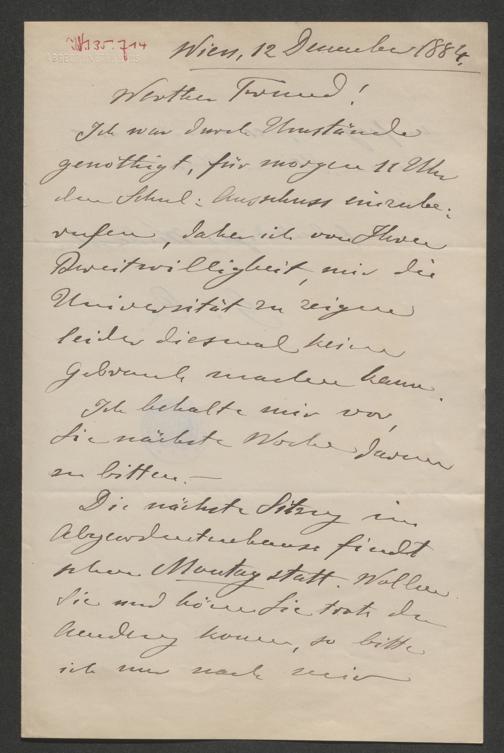 Wien, 12 Dezember 1884.
Werther Freund!
Ich war durch Umstände
genöthigt, für morgen 11 Uhr
den Schul: Ausschuss einzube:
rufen, daher ich von Ihrer
Bereitwilligkeit, mir die
Universität zu zeigen
leider diesmal keinen
Gebrauch machen kann.
Ich behalte mir vor,
Sie nächste Woche darum
zu bitten. —
Die nächste Sitzung im
Abgeordnetenhause findet
schon Montag statt. Wollen
Sie und können Sie trotz der
kommen, so bitte
ich nur nach mir